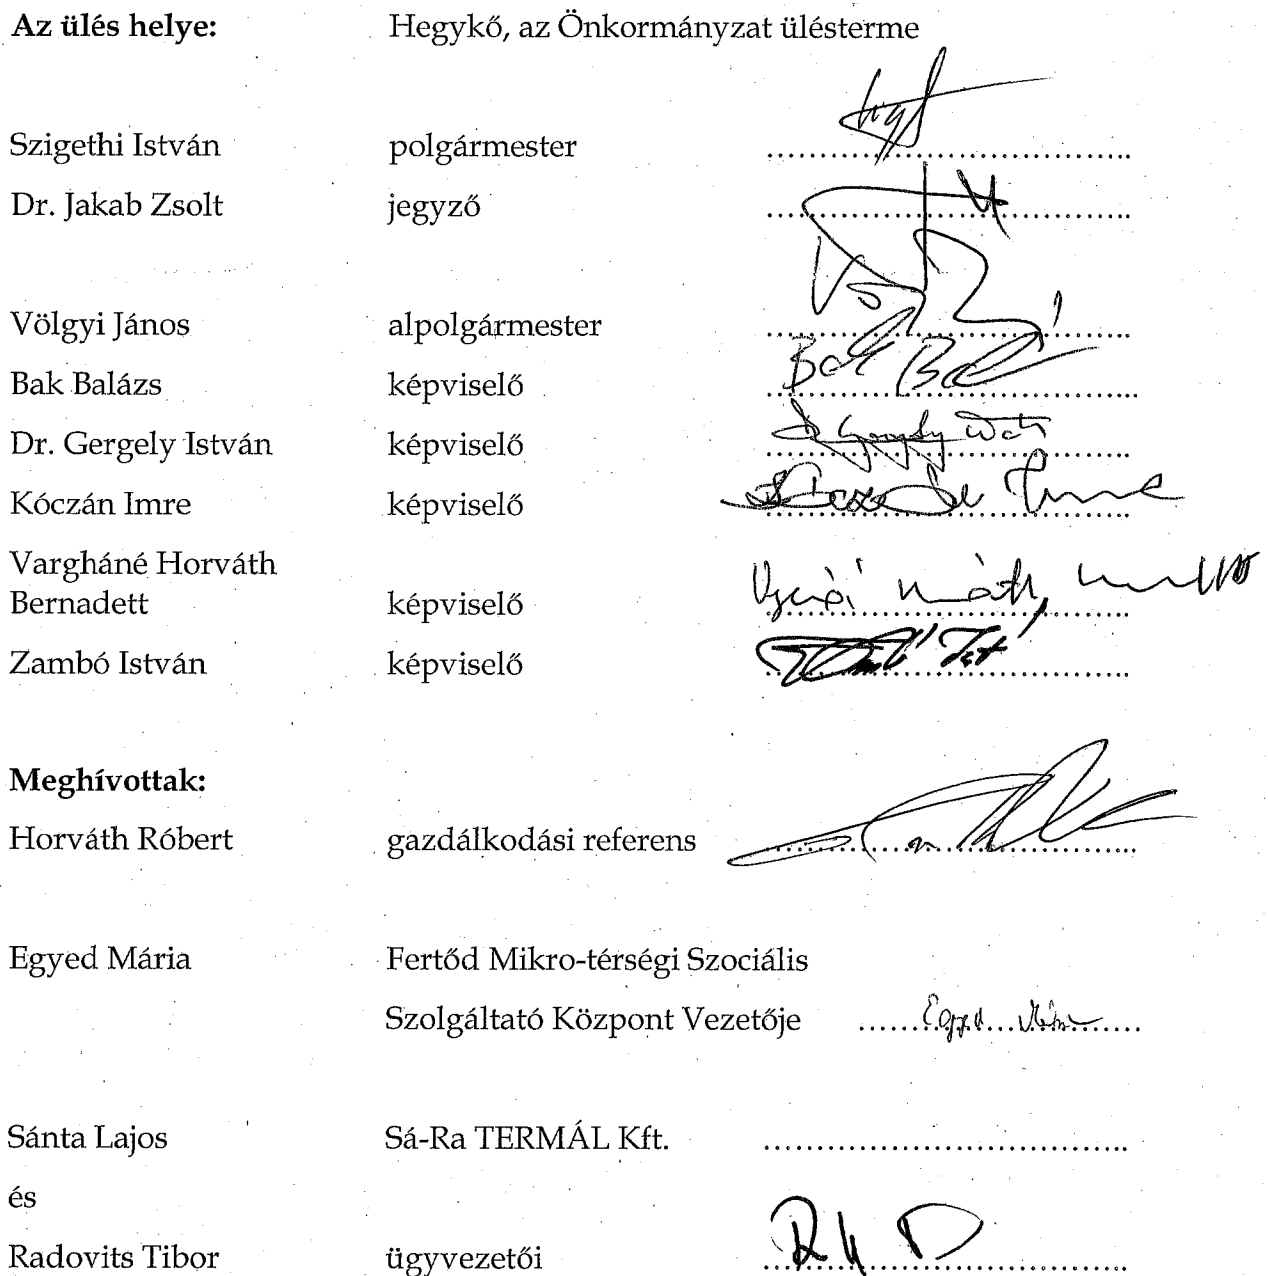 Az ülés helye: Hegykő, az Önkormányzat ülésterme
Szigethi István polgármester
Dr. Jakab Zsolt jegyző
Völgyi János alpolgármester
Bak Balázs képviselő
Dr. Gergely István képviselő
Kóczán Imre képviselő
Vargháné Horváth
Bernadett képviselő
Zambó István képviselő
Meghívottak:
Horváth Róbert gazdálkodási referens
Egyed Mária Fertőd Mikro-térségi Szociális
Szolgáltató Központ Vezetője
Sánta Lajos Sá-Ra TERMÁL Kft.
és
Radovits Tibor ügyvezetői